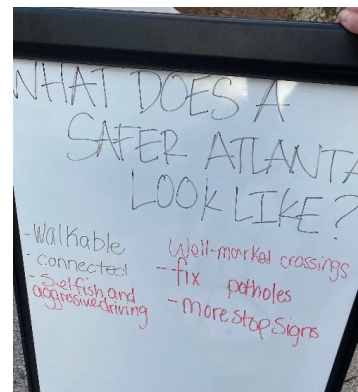 WHAT DOES A
SAFER ATLANTA
LOOK LIKE?
- Walkable
- connected
- Selfish and
aggressive driving
Well-marked crossings
- fix potholes
- more stop signs